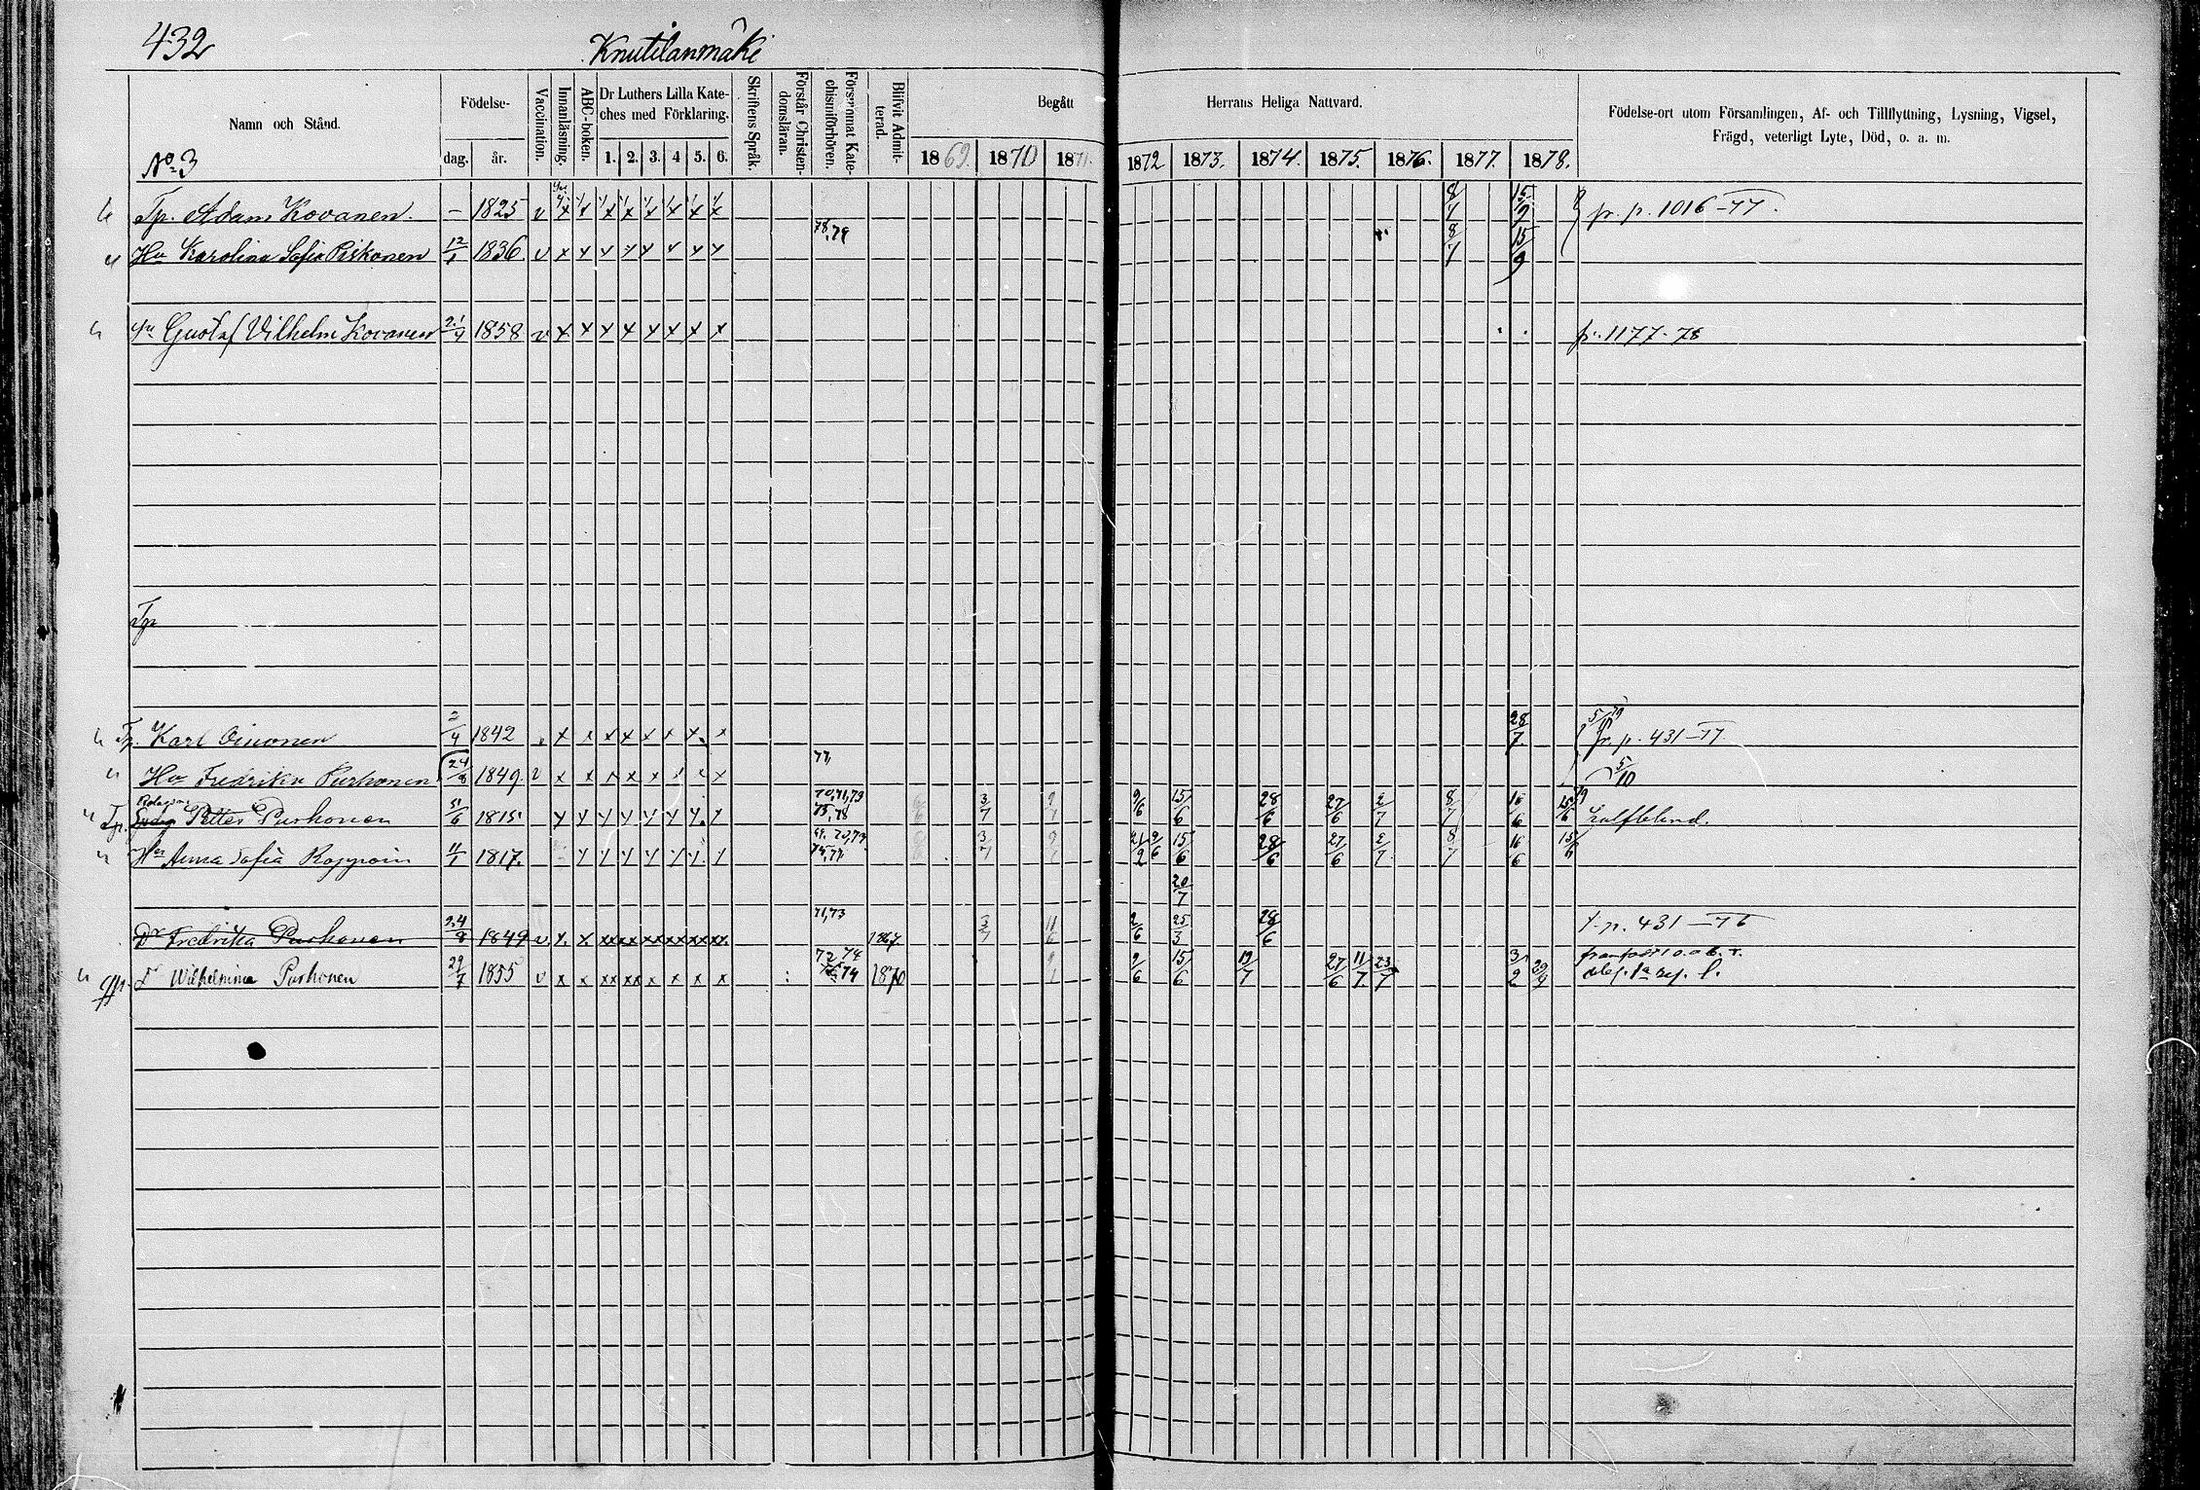 432
Knutilanmäki
Namn och Stånd.
No 3
Födelse-
dag. år.
Vaccination.
Innanläsning.
ABC-boken.
Dr Luthers Lilla Kate-
ches med Förklaring.
1. 2. 3. 4 5. 6.
Skriftens Språk.
Förstår Christen-
domsläran.
Försummat Kate-
chismiförhören.
Blifvit Admit-
terad.
Begått Herrans Heliga Nattvard.
1869. 1870 1871. 1872 1873. 1874. 1875. 1876. 1877. 1878.
Födelse-ort utom Församlingen, Af- och Tillflyttning, Lysning, Vigsel,
Frägd, veterligt Lyte, Död, o. a. m.
Tp. Adam Kovanen. – 1825 v x x x x x x x x 8/7 15/9 fr. p. 1016–77.
Hu Karolina Sofia Piskonen 12/1 1836 v x x x x x x x x 78,79 8/7 15/9
Gustaf Vilhelm Kovanen 21/4 1858 v x x x x x x x x p. 1177-78
Tp
Tp. Karl Oinonen 2/4 1842 x x x x x x x x 28/7 5/79 fr. p. 431–77.
Hu Fredrika Purhonen 24/8 1849. v x x x x x x x x 77, 5/10
Tp. Petter Purhonen 1815 x x x x x x x x 70,71,73 75,78 3/7 9/7 9/6 15/6 28/6 27/6 2/7 8/7 16/6 15/6 79 halfblind.
Hu Anna Sofia Roppoin 11/1 1817. x x x x x x x 3/7 9/7 21/2 9/6 15/6 28/6 27/6 2/7 8/7 16/6 15/6
20/7
Dr Fredrika Purhonen 24/8 1849 v x. x xx xx xx xx xx xx 71,73 1867 3/7 11/6 2/6 25/3 28/6 t. p. 431–76
Dr Wilhelmina Purhonen 29/7 1855 v x x xx xx x x x x 1870 9/7 9/6 15/6 19/7 27/6 11/7 23/7 3/2 29/9